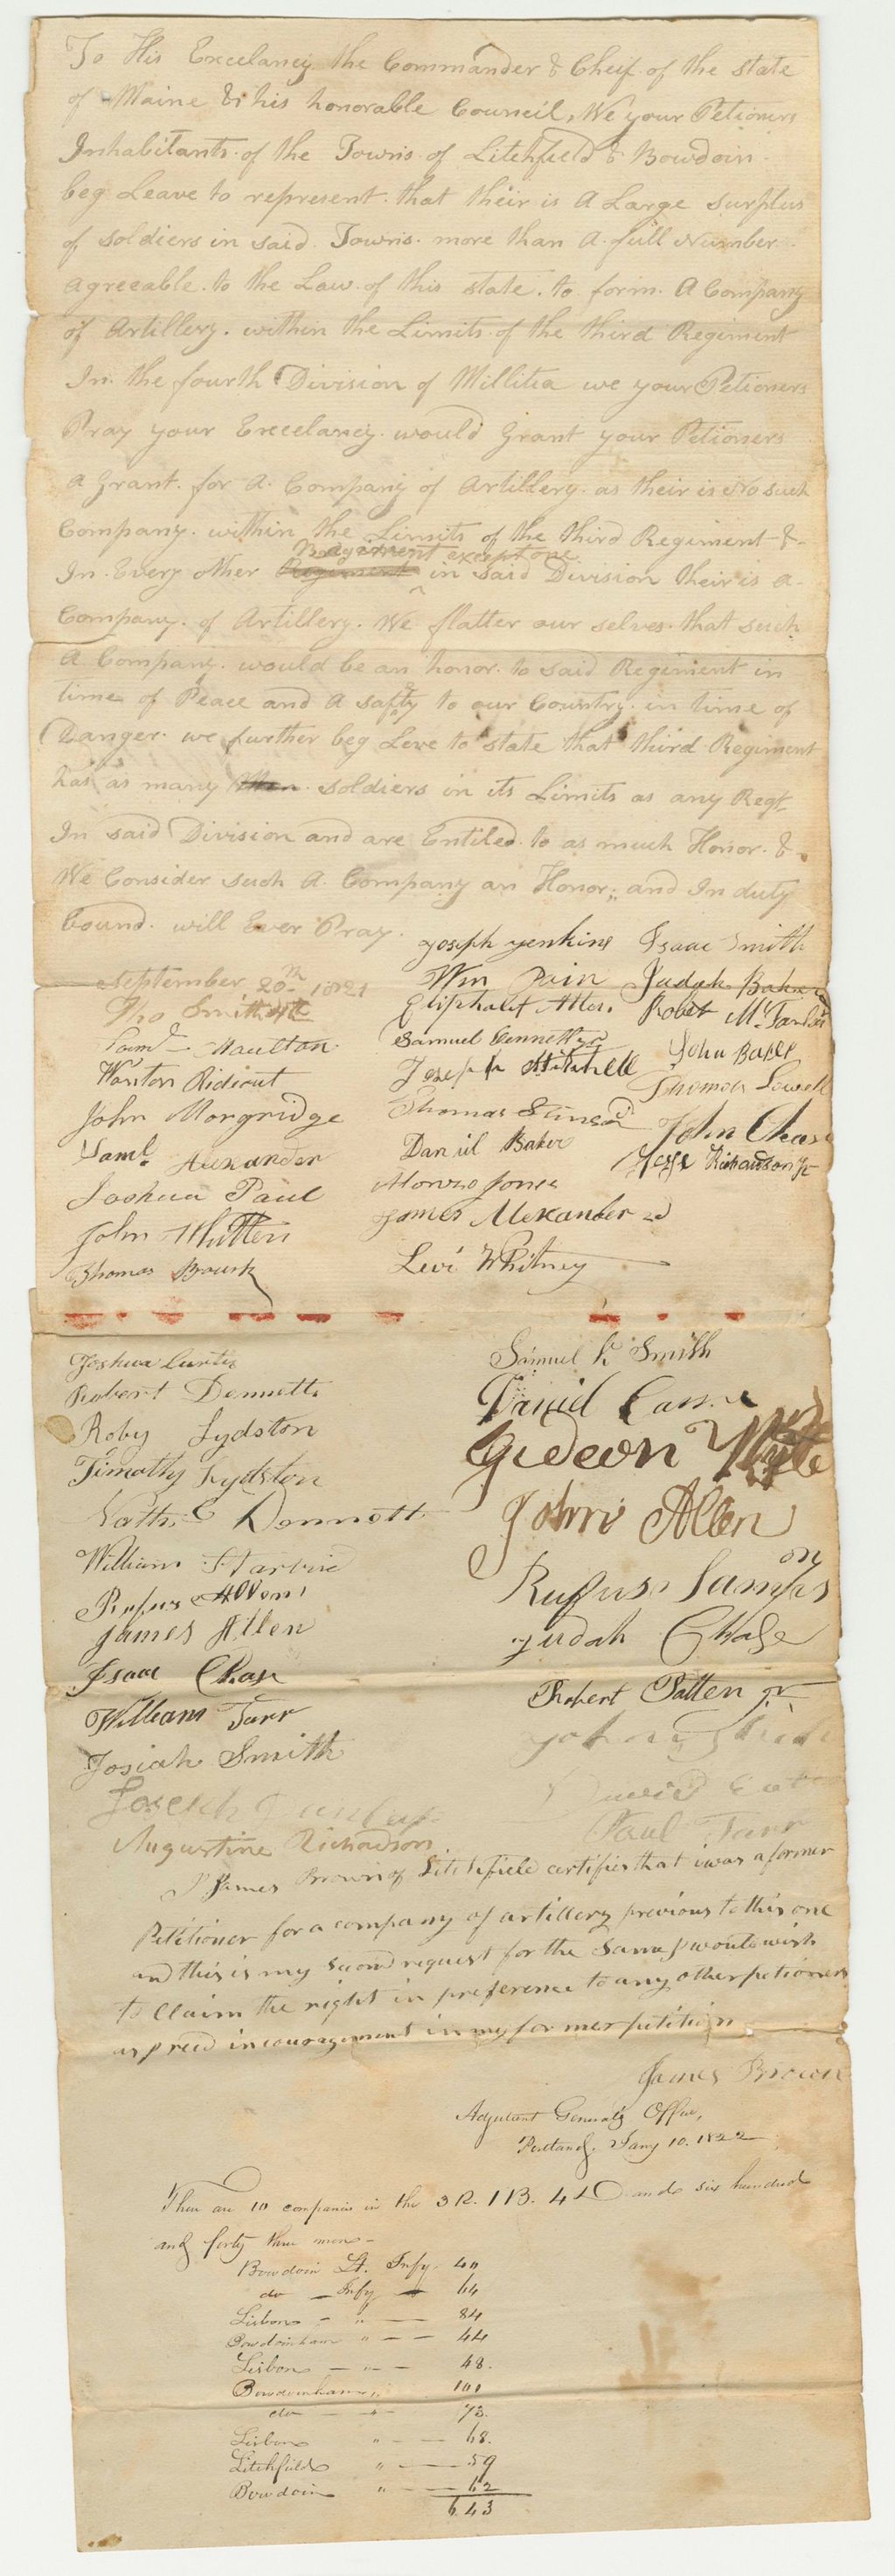 To His Excelancy the Commander & Cheif of the state
of Maine & his honorable Council, We your Petioners
Inhabitants of the Towns of Litchfield & Bowdoin
beg Leave to represent that their is A Large surplus
of soldiers in said Towns more than A full Number
agreeable to the Law of this state to form A Company
of Artillery within the Limits of the third Regiment
In the fourth Division of Millitia we your Petioners
Pray your Excelancy would grant your Petioners
A grant for A Company of Artillery as their is No such
Company within the Limits of the third Regiment &
except one
In Every other in said Division their is a
Company of Artillery. We flatter our selves that such
A Company would be an honor to said Regiment in
time of Peace and A safty to our Country in time of
Danger we further beg Leve to state that third Regiment
has as many soldiers in its Limits as any Regt
In said Division and are Entiled to as much Honor &
We Consider such A Company an Honor and In duty
bound will Ever Pray.
Joseph Jenkins Isaac Smith
September 20th 1821 Wm Pain Judah Baker
Tho Smith 4th Eliphalet Allen Robert McFarland
Saml Moulton Samuel Dennett Jr John Baker
Wanton Ridout Joseph Mitchell Thomas Lowell
John Morgridge Thomas Stinson John Chase
Saml Alexander Daniel Baker Jesse Richardson Jr
Joshua Paul Alonzo Jones
John Mutten James Alexander 2d
Thomas Bourk Levi Whitney
Joshua Curtis Samuel K Smith
Robert Dennett Daniel
Roby Lydston Gideon
Timothy Lydston
Nathl Dennett John Allen
William Starbird
Rufus Allen Rufus Sampson
James Allen Judah Chase
Isaac Chase
William Tarr Robert Patten Jr
Josiah Smith John
Joseph Dunlap David
Augustine Richardson Paul Tarr
I James Brown of Litchfield certifies that i was a former
Petitioner for a company of artillery previous to this one
and this is my second request for the same I would wish
to Claim the right in preference to any other petioners
as I recd incouragement in my former petition
James Brown
Adjutant General's Office,
Portland, Jany 10. 1822
There are 10 companies in the 3 R. 1 B. 4 D and six hundred
and forty three men -
Bowdoin Lt. Infy 40
do - Infy - 64
Lisbon - " - 84
Bowdoinham " - - 44
Lisbon - " - 48.
Bowdoinham " 101
do - " - 73.
Lisbon " - - 68.
Litchfield " - 59
Bowdoin " - - 62
643